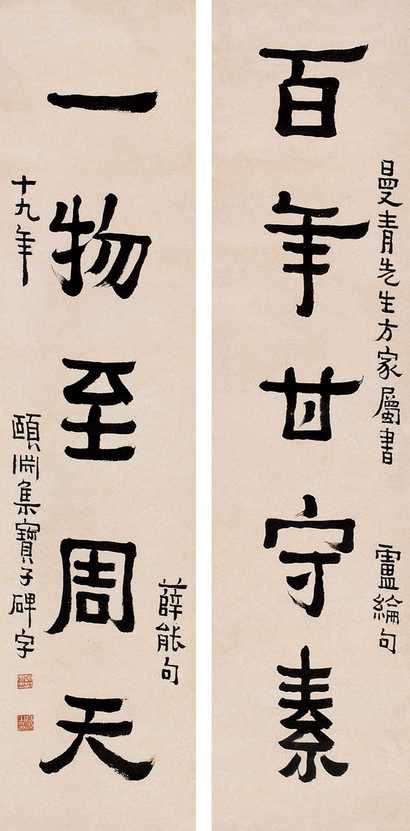 曼青先生方家屬書
百年甘守素
盧綸句
一物至周天
薛能句
十九年
頤淵集寶子碑字